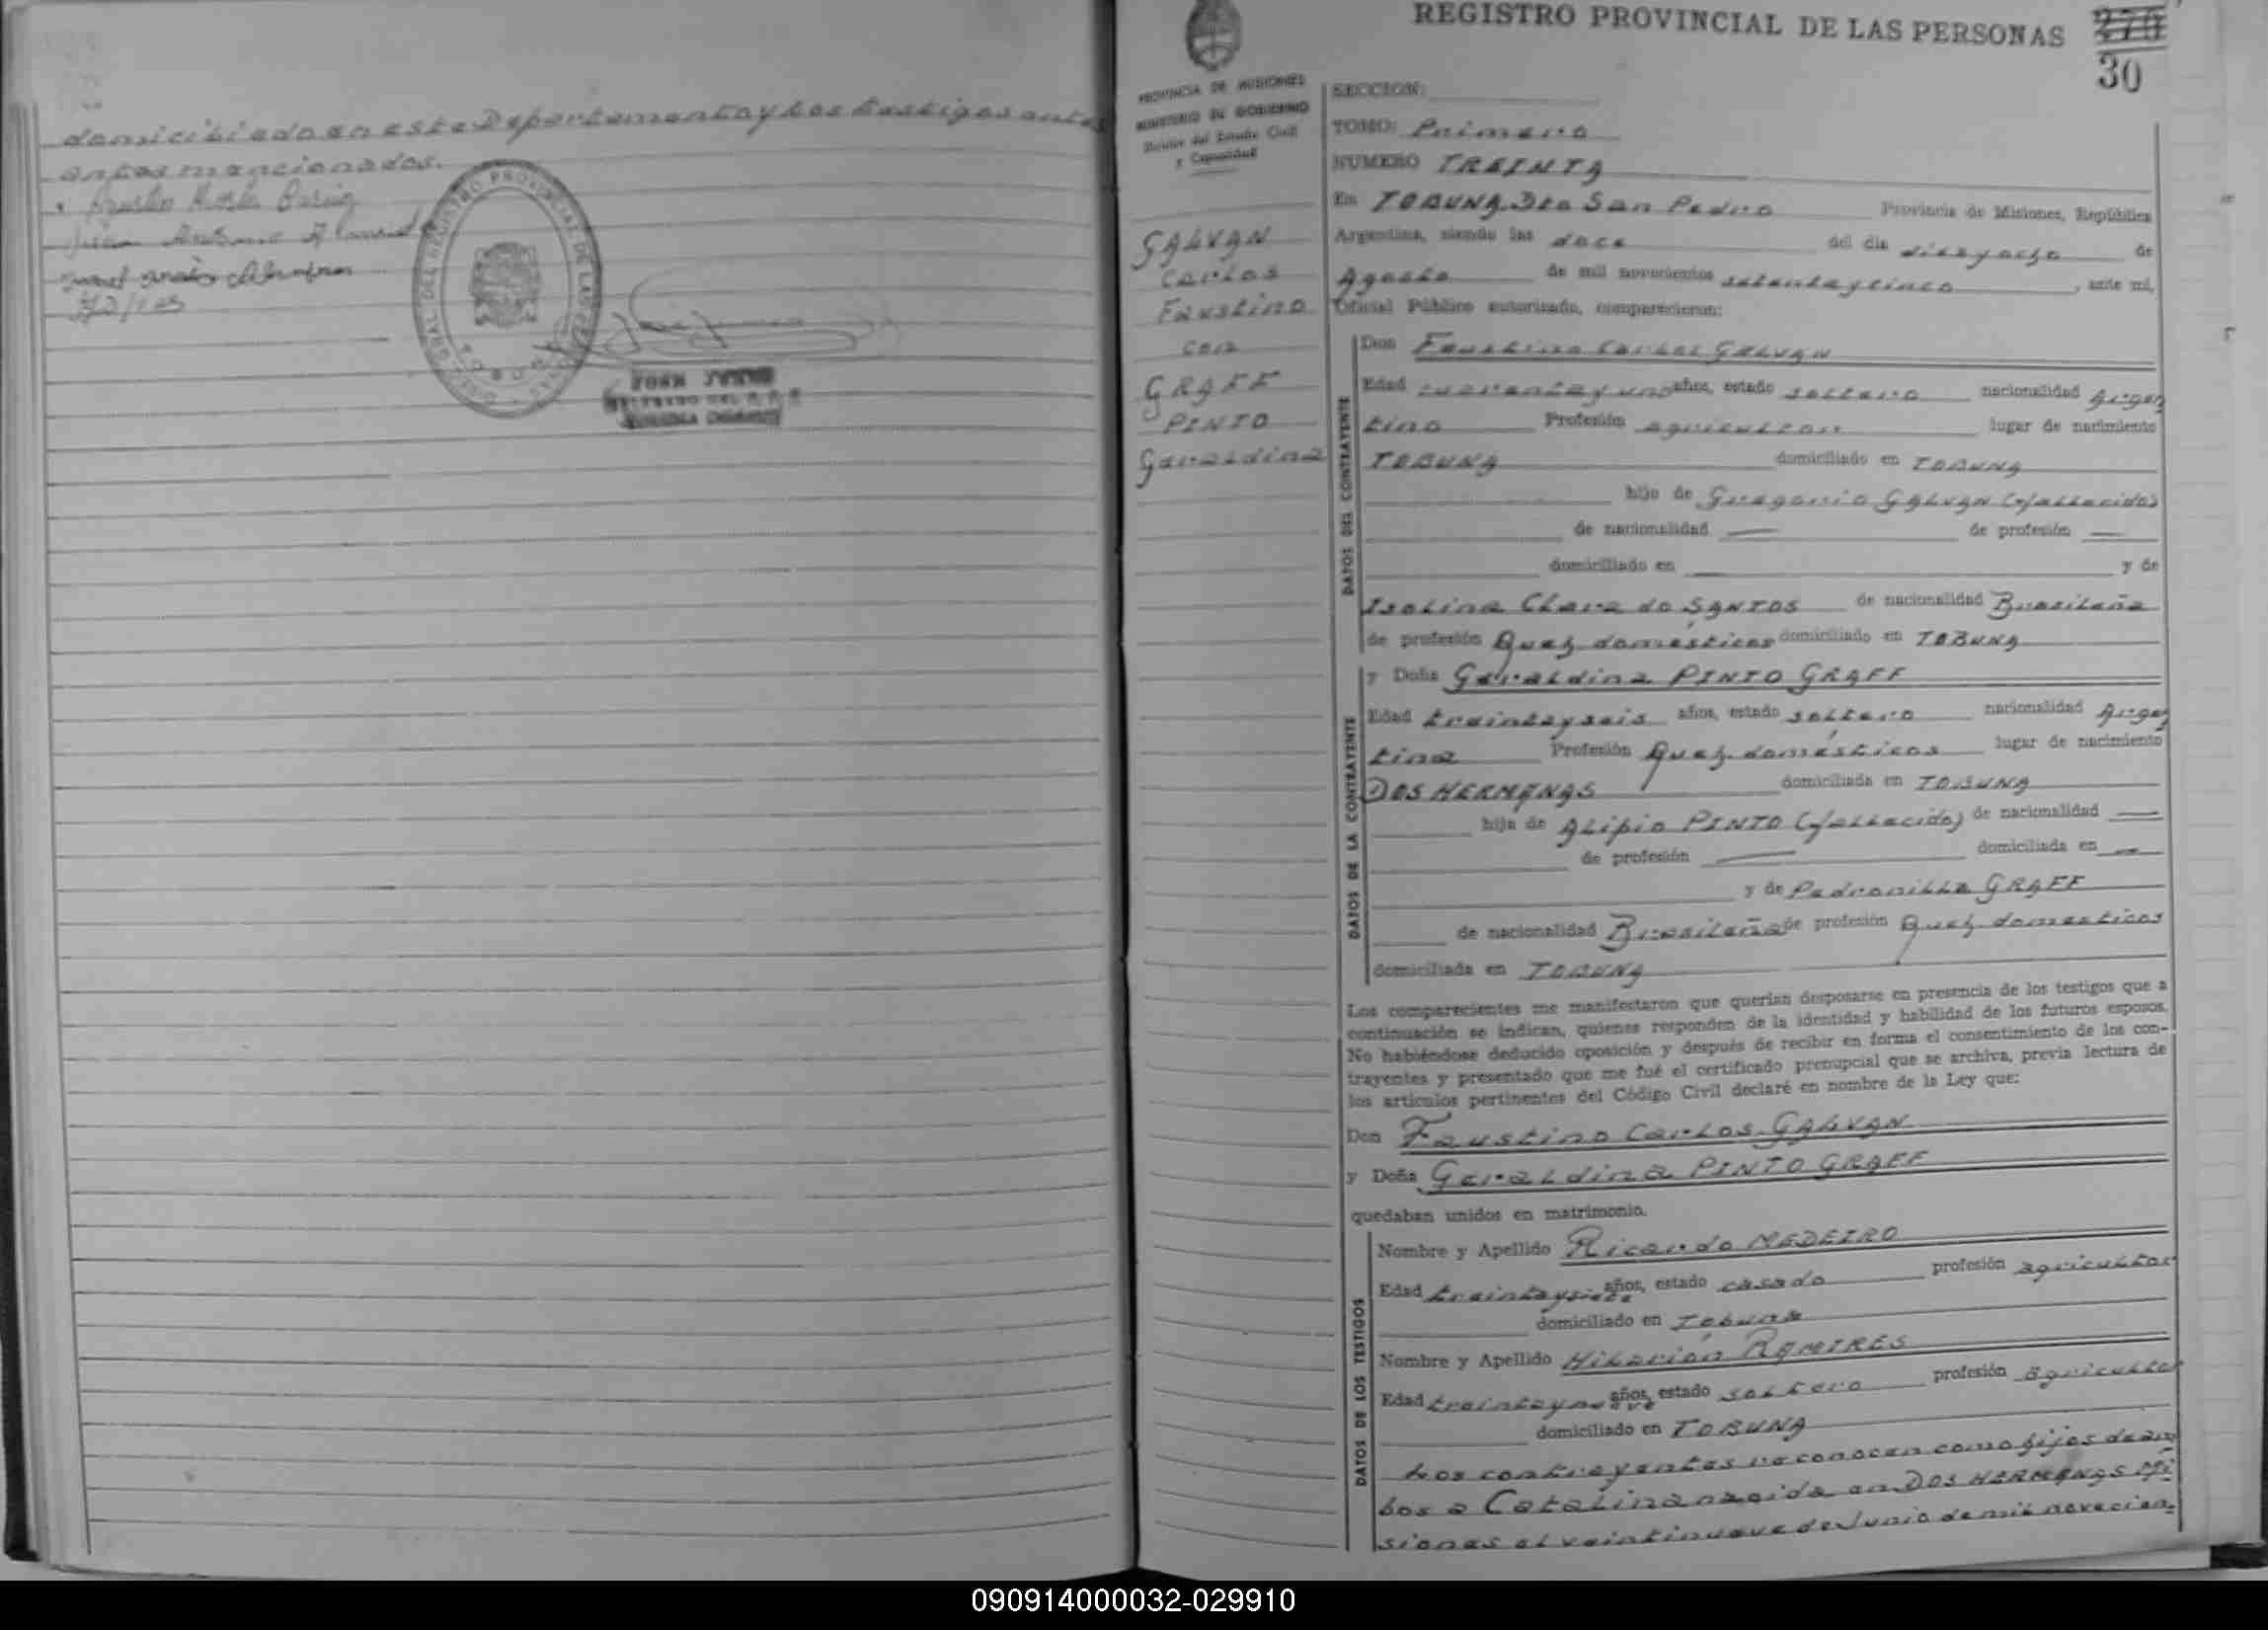 domiciliado en este Departamento y los testigos antes
antes mencionados.
DIRECCION GRAL DEL REGISTRO PROVINCIAL DE LAS PERSONAS
TOBUNA
REGISTRO PROVINCIAL DE LAS PERSONAS
270
30
PROVINCIA DE MISIONES
MINISTERIO DE GOBIERNO
División del Estado Civil
y Capacidad
GALVAN
Carlos
Faustino
con
GRAFF
PINTO
Geraldina
SECCION:
TOMO: Primero
NUMERO TREINTA
En TOBUNA Dto San Pedro Provincia de Misiones, República
Argentina, siendo las doce del día dieciocho de
Agosto de mil novecientos setenta y cinco, ante mí,
Oficial Público autorizado, comparecieron:
DATOS DEL CONTRAYENTE
Don Faustino Carlos GALVAN
Edad cuarenta y uno años, estado soltero nacionalidad Argen
tino Profesión agricultor lugar de nacimiento
TOBUNA domiciliado en TOBUNA
hijo de Gregorio GALVAN (fallecido)
de nacionalidad — de profesión —
domiciliado en — y de
Isolina Clara do SANTOS de nacionalidad Brasileña
de profesión Queh. domésticos domiciliado en TOBUNA
DATOS DE LA CONTRAYENTE
y Doña Geraldina PINTO GRAFF
Edad treinta y seis años, estado soltera nacionalidad Argen
tina Profesión Queh. domésticos lugar de nacimiento
DOS HERMANAS domiciliada en TOBUNA
hija de Alipio PINTO (fallecido) de nacionalidad —
de profesión — domiciliada en —
y de Pedronilla GRAFF
de nacionalidad Brasileña de profesión Queh. domesticos
domiciliada en TOBUNA
Los comparecientes me manifestaron que querían desposarse en presencia de los testigos que a
continuación se indican, quienes responden de la identidad y habilidad de los futuros esposos.
No habiéndose deducido oposición y después de recibir en forma el consentimiento de los con-
trayentes y presentado que me fué el certificado prenupcial que se archiva, previa lectura de
los artículos pertinentes del Código Civil declaré en nombre de la Ley que:
Don Faustino Carlos GALVAN
y Doña Geraldina PINTO GRAFF
quedaban unidos en matrimonio.
DATOS DE LOS TESTIGOS
Nombre y Apellido Ricardo MEDEIRO
Edad treinta y siete años, estado casado profesión agricultor
domiciliado en Tobuna
Nombre y Apellido Hilarión RAMIRES
Edad treinta y nueve años, estado soltero profesión agricultor
domiciliado en TOBUNA
Los contrayentes reconocen como hijos de am
bos a Catalina nacida en DOS HERMANAS Mi
siones el veintinueve de Junio de mil novecien-
090914000032-029910